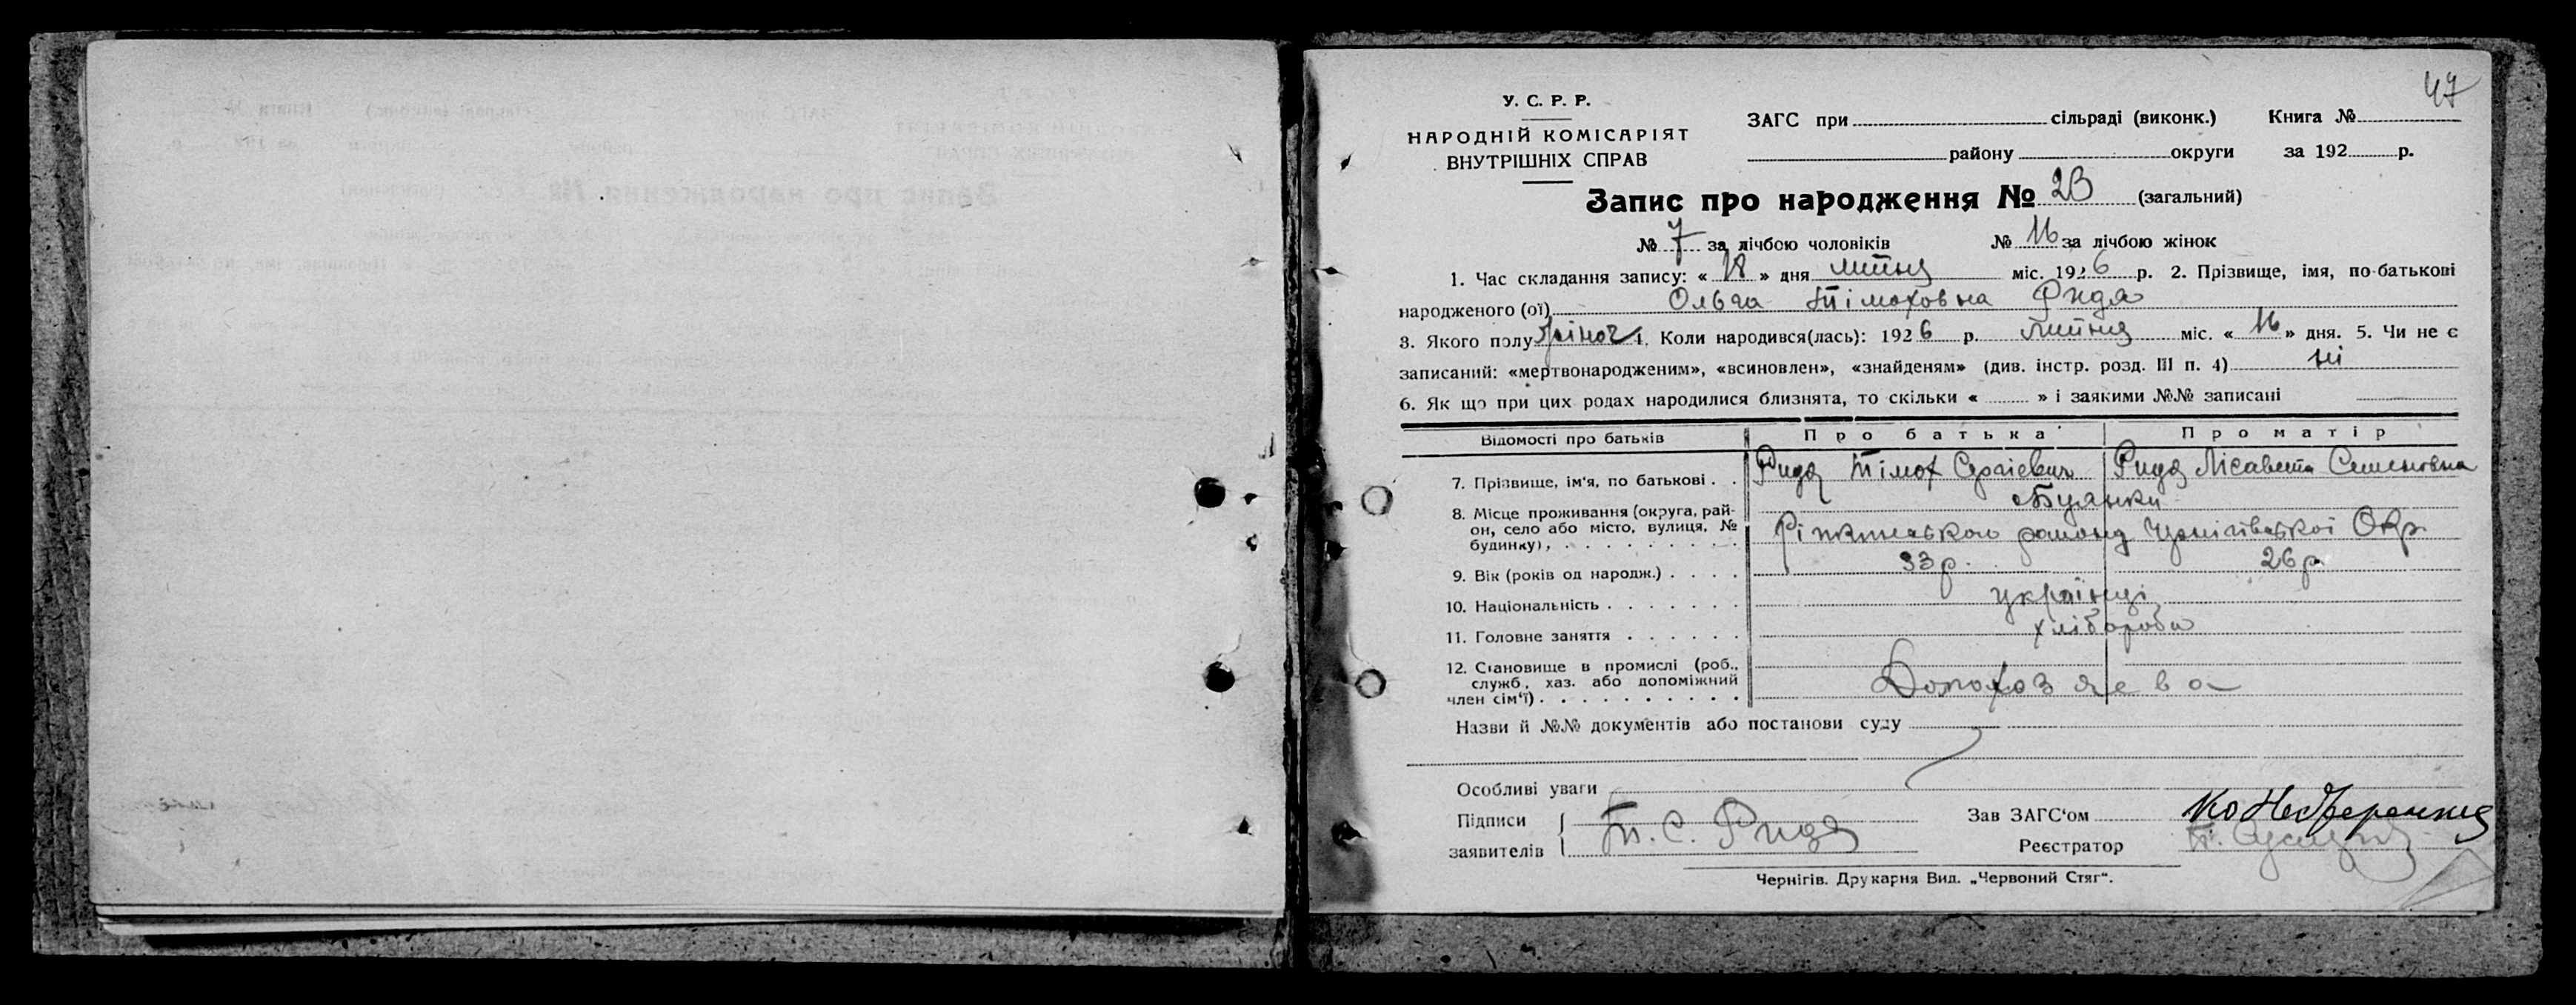 47
У. С. Р. Р.
НАРОДНІЙ КОМІСАРІЯТ
ВНУТРІШНІХ СПРАВ
ЗАГС при сільраді (виконк.) Книга №
району округи за 192 р.
Запис про народження № 23 (загальний)
№ 7 за лічбою чоловіків № 16 за лічбою жінок
1. Час складання запису: « 18 » дня липня міс. 1926 р. 2. Прізвище, імя, по-батькові
народженого (ої) Ольга Тімоховна Рида
3. Якого полу жіноч 4. Коли народився(лась): 1926 р. липня міс. « 16 » дня. 5. Чи не є
записаний: «мертвонародженим», «всиновлен», «знайденям» (див. інстр. розд. III п. 4) ні
6. Як що при цих родах народилися близнята, то скільки « » і заякими №№ записані
Відомості про батьків Про батька Про матір
7. Прізвище, ім'я, по батькові . . Рида Тімох Сергієвич Рида Лісавета Семеновна
8. Місце проживання (округа, район, село або місто, вулиця, № будинку), Буянки
Ріпкинського району Чернігівської Окр.
9. Вік (років од народж.) . . . . 33 р. 26 р.
10. Національність . . . . . . . українці
11. Головне заняття . . . . . . хлібороби
12. Становище в промислі (роб.,
служб., хаз. або допоміжний
член сім'ї) . . . . . . . . . .
Назви й №№ документів або постанови суду
Особливі уваги
Підписи Т. С. Рида Зав ЗАГС'ом
заявителів Реєстратор
Чернігів. Друкарня Вид. „Червоний Стяг".